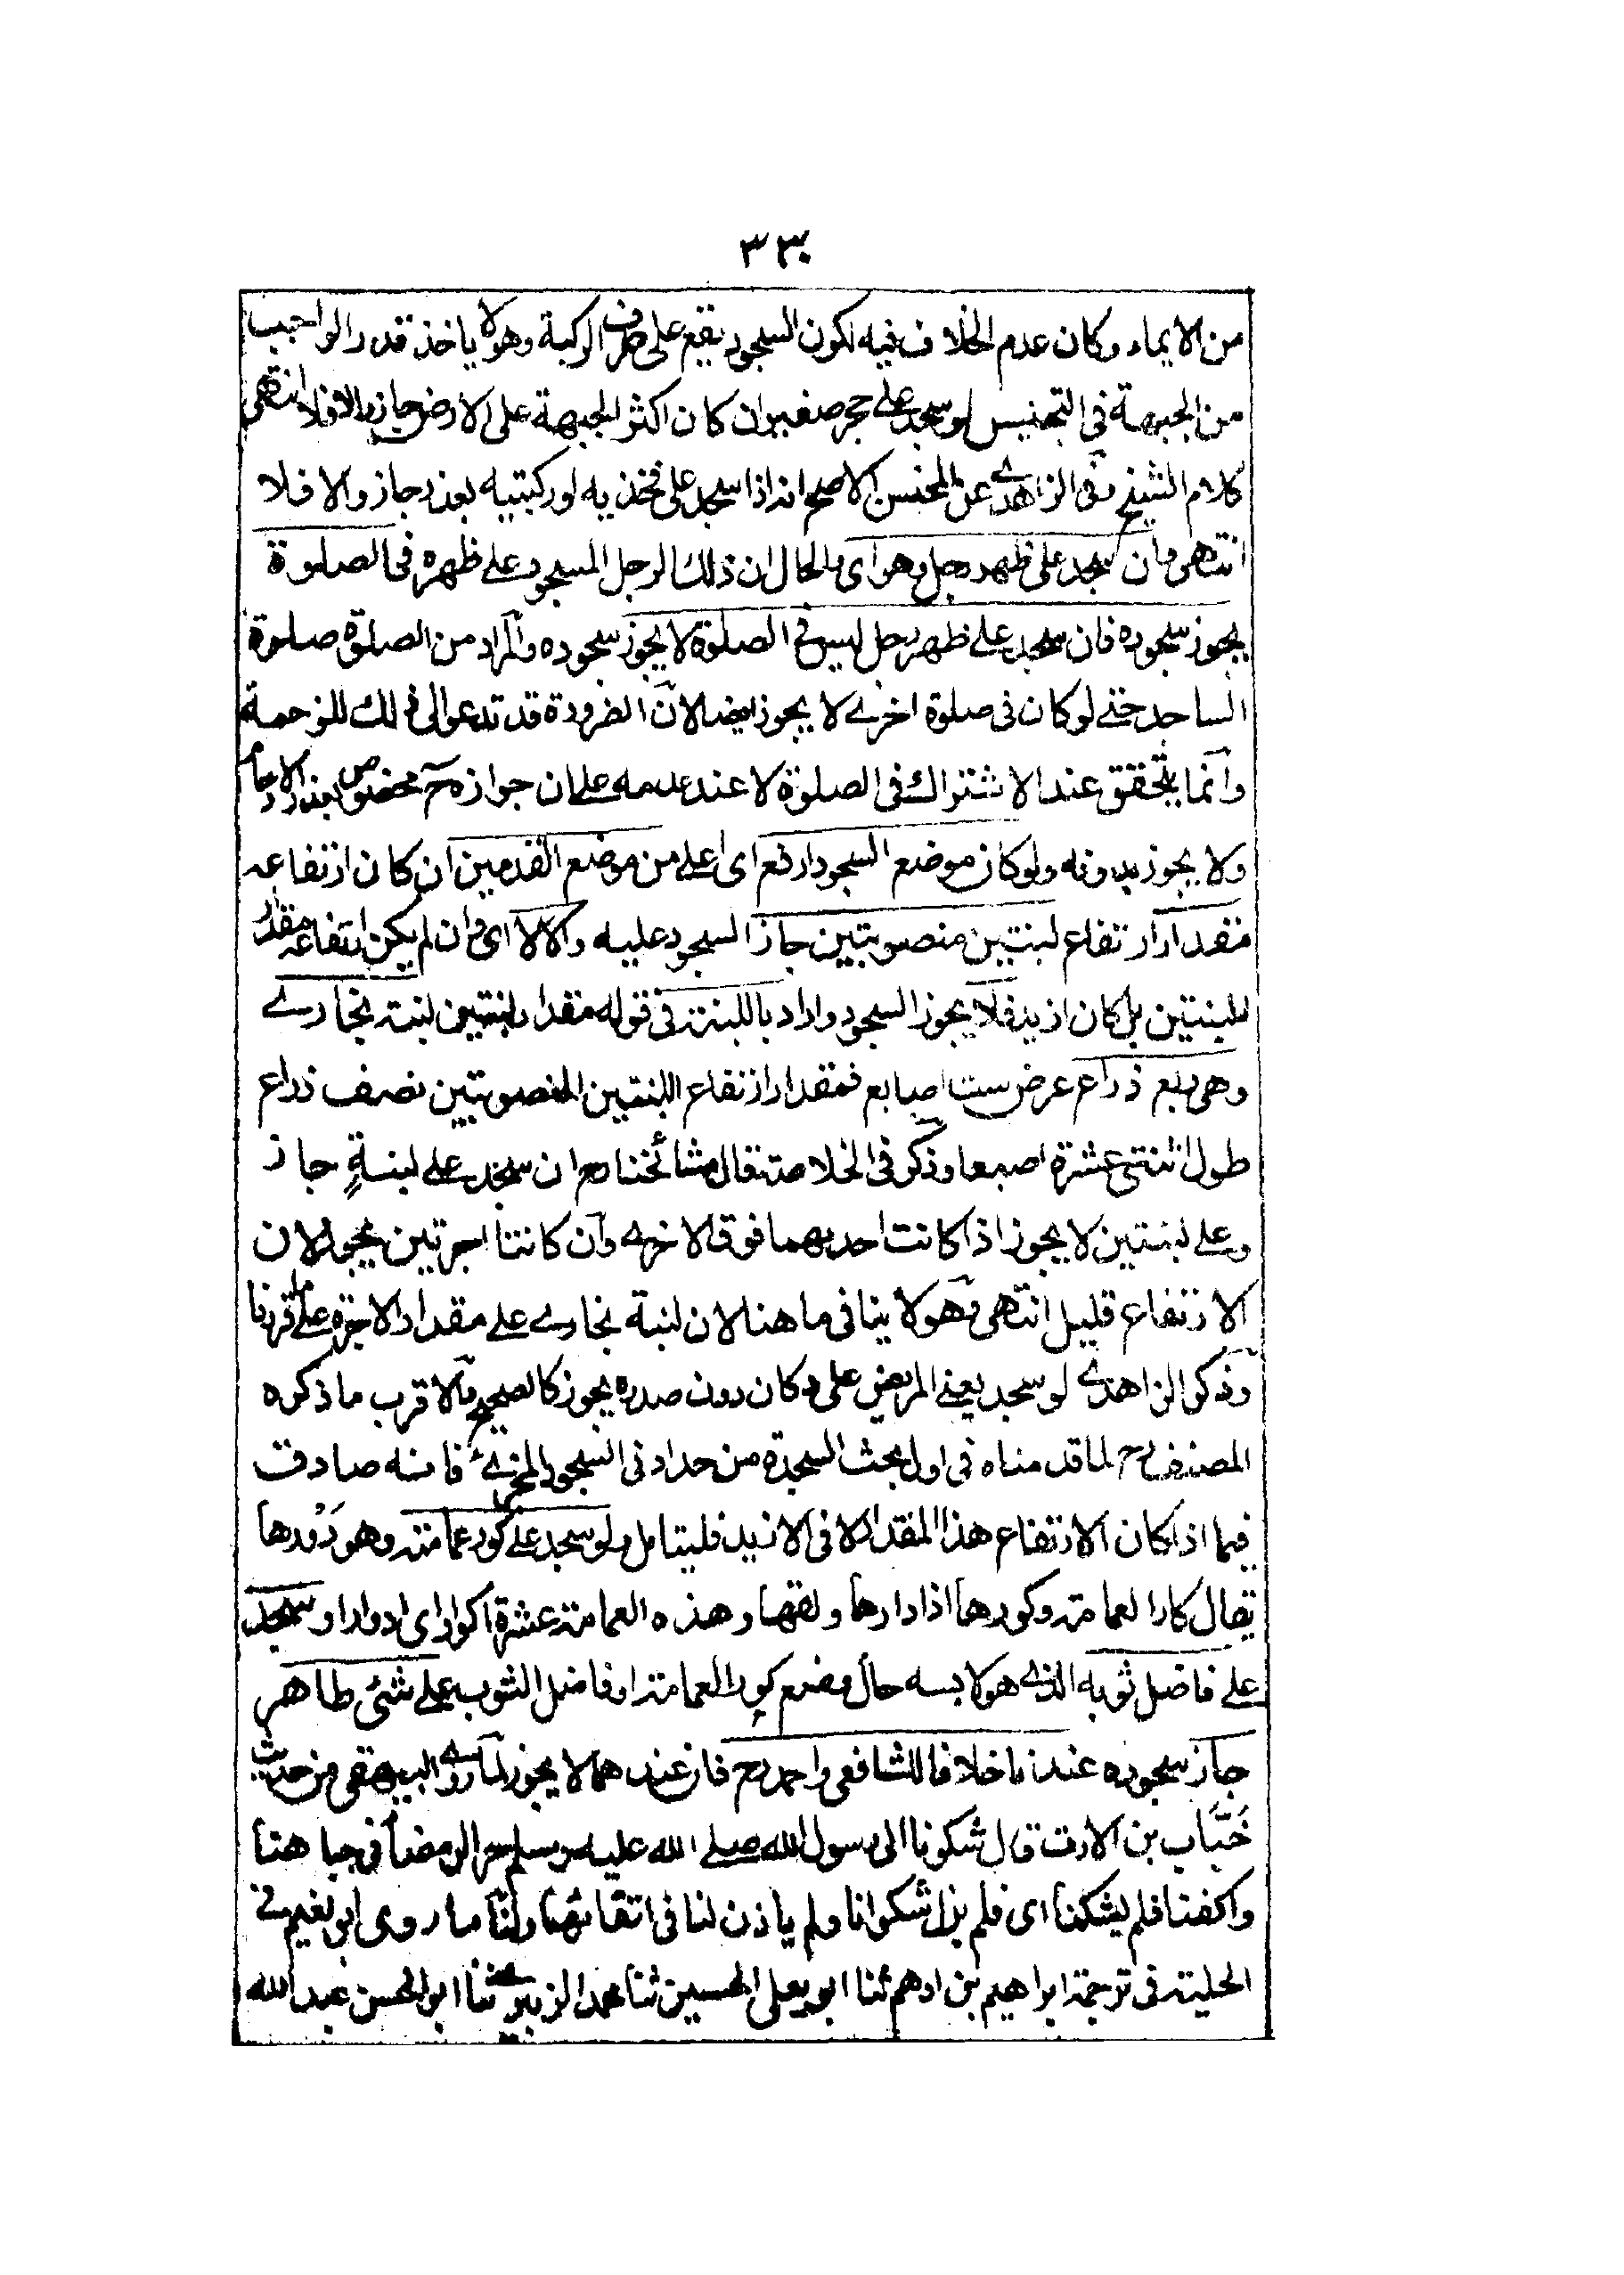 ٣٣٠
من الايماء وكان عدم الخلاف فيه لكون السجود يقع على حرف الركبة وهو لا ياخذ قدر الواجب
من الجبهة فى التجنيس لو سجد على حجر صغير ان كان اكثر الجبهة على الارض جاز والا فلا انتهى
كلام الشيخ وفى الزاهدى عن المحسن الاصح انه اذا سجد على فخذيه او ركبتيه بعذر جاز والا فلا
انتهى وان سجد على ظهر رجل وهو اى والحال ان ذلك الرجل المسجود على ظهره فى الصلوة
يجوز سجوده فان سجد على ظهر رجل ليس فى الصلوة لا يجوز سجوده والمراد من الصلوة صلوة
الساجد حتى لو كان فى صلوة اخرى لا يجوز ايضا لان الضرورة قد تدعو الى ذلك للزحمة
وانما يتحقق عند الاشتراك فى الصلوة لا عند عدمه على ان جوازه ح مخصوص بعذر الازدحام
ولا يجوز بدونه ولو كان موضع السجود ارفع اى اعلى من موضع القدمين ان كان ارتفاعه
مقدار ارتفاع لبنتين منصوبتين جاز السجود عليه والا لا اى وان لم يكن ارتفاعه مقدار
اللبنتين بل كان ازيد فلا يجوز السجود واراد باللبنة فى قوله مقدار لبنتين لبنة بخارى
وهى ربع ذراع عرض ست اصابع فمقدار ارتفاع اللبنتين المنصوبتين نصف ذراع
طول اثنتى عشرة اصبعا وذكر فى الخلاصة قال مشائخنا رح ان سجد على لبنةٍ جاز
وعلى لبنتين لا يجوز اذا كانت احدٰيهما فوق الاخرى وان كانتا اجرتين يجوز لان
الارتفاع قليل انتهى وهو لا ينافى ما هنا لان لبنة بخارى على مقدار الاجرة على ما قررنا
وذكر الزاهدى لو سجد يعنى المريض على دكان دون صدره يجوز كالصحيح والاقرب ما ذكره
المصنف رح لما قدمناه فى اول بحث السجدة من حد ادنى السجود المجزئ فانه صادق
فيما اذا كان الارتفاع هذا المقدار لا فى الازيد فليتامل ولو سجد على كور عمامته وهو دَوْرها
يقال كار العمامة وكورها اذا دارها ولفها وهذه العمامة عشرة اكوار اى ادوار او سجد
على فاضل ثوبه الذى هو لابسه حال وضع كور العمامة او فاضل الثوب على شئ طاهر
جاز سجوده عندنا خلافا للشافعى واحمد رح فان عندهما لا يجوز لما روى البيهقى من حديث
خَبَّاب بن الارت قال شكونا الى رسول الله صلى الله عليه وسلم حر الرمضاء فى جباهنا
واكفنا فلم يشكنا اى فلم يزل شكوانا ولم ياذن لنا فى اتقائهما ولنا ما روى ابو نعيم فى
الحلية فى ترجمة ابراهيم بن ادهم ثنا ابو يعلى الحسين ثنا محمد الزبيرى ثنا ابو الحسن عبد الله